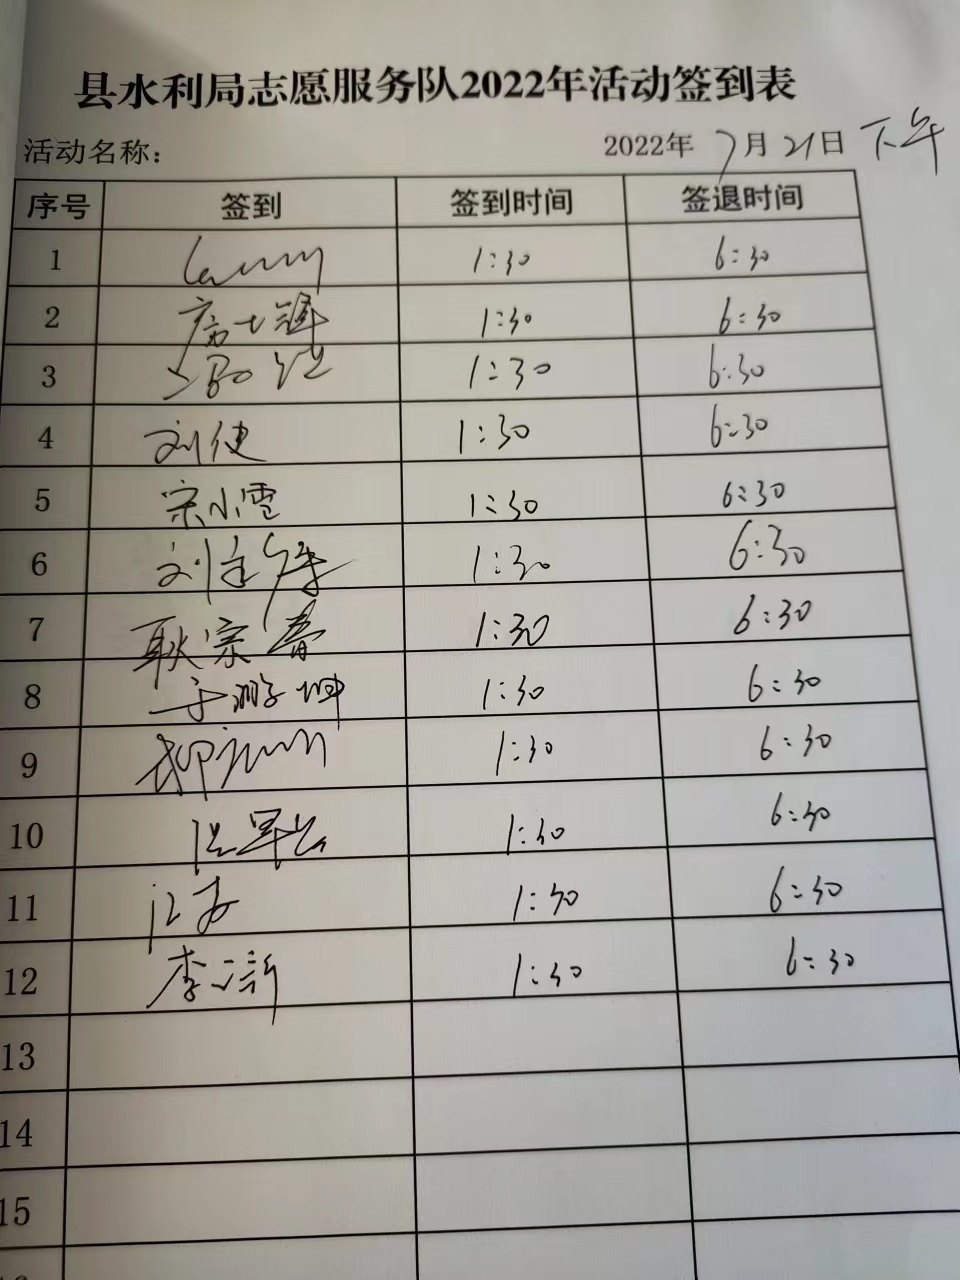 县水利局志愿服务队2022年活动签到表
活动名称： 2022年7月21日 下午
序号 签到 签到时间 签退时间
1 1:30 6:30
2 1:30 6:30
3 1:30 6:30
4 刘健 1:30 6:30
5 宋小雪 1:30 6:30
6 1:30 6:30
7 耿宗春 1:30 6:30
8 于鹏坤 1:30 6:30
9 1:30 6:30
10 1:30 6:30
11 1:30 6:30
12 1:30 6:30
13
14
15